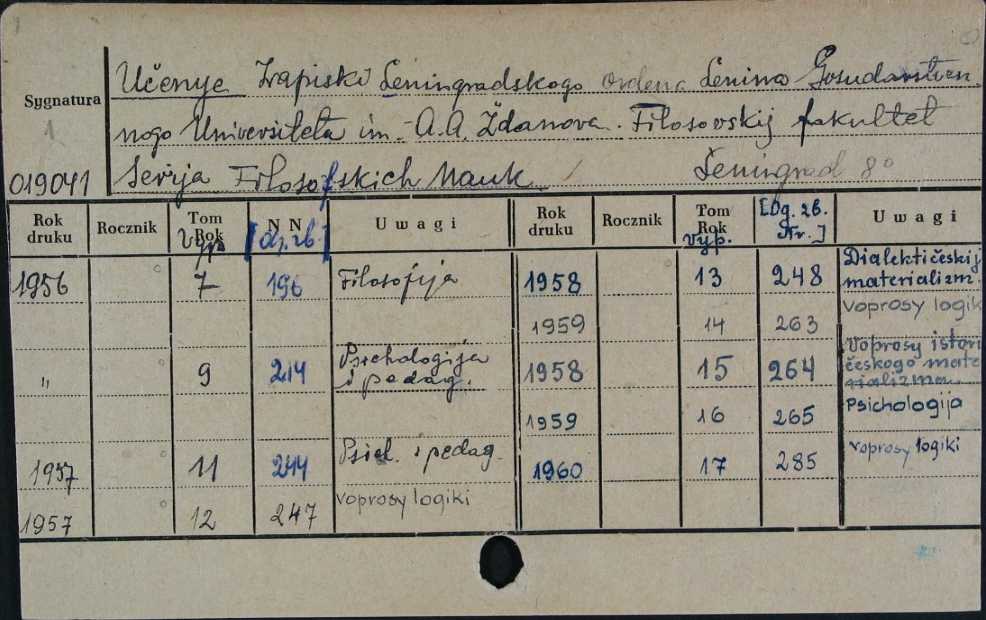 Učenye Zapiski Leningradskogo ordena Lenina Gosudarstven
Sygnatura
1
nogo Universiteta im. A.A. Ždanova. Filosovskij fakultet
019041
Serija Filosofskich Nauk
Leningrad 8°
Rok druku Rocznik Tom Rok Vyp. N N [Og. zb.] Uwagi Rok druku Rocznik Tom Rok Vyp. [Og. zb. Nr.] Uwagi
1956 7 196 Filosofija 1958 13 248 Dialektičeskij materializm.
1959 14 263 Voprosy logik
" 9 214 Psichologija i pedag. 1958 15 264 Voprosy istori českogo mate rializma.
1959 16 265 Psichologija
1957 11 244 Psich. i pedag. 1960 17 285 voprosy logiki
1957 12 247 voprosy logiki